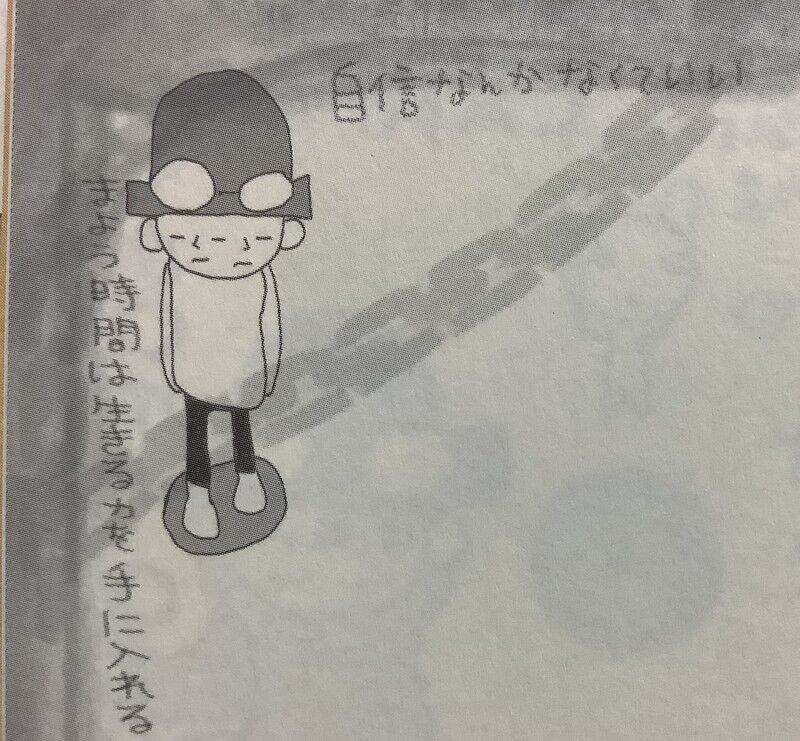 自信なんかなくていい
まよう時間は考える力を手に入れる